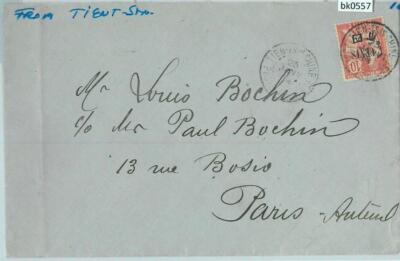 FROM TIENT-Sin.
bk0557
Mr Louis Bochin
c/o Mr Paul Bochin
13 rue Bosio
Paris-Auteuil